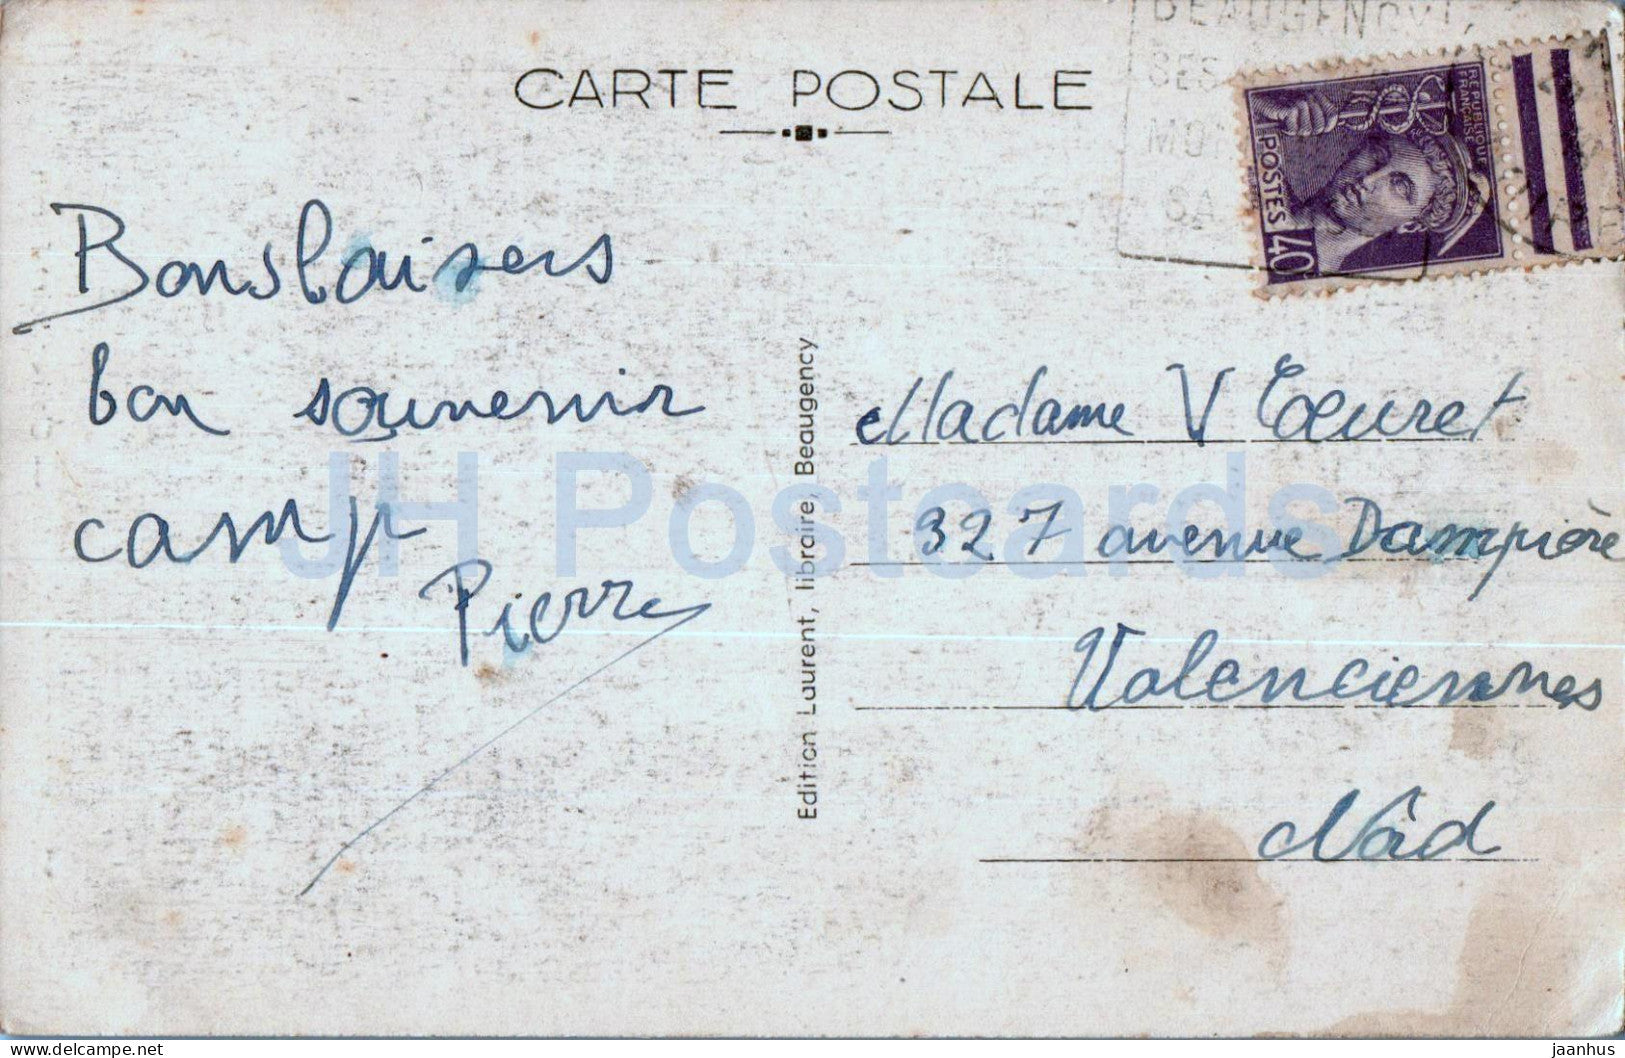 CARTE POSTALE
BEAUGENCY
SES
REPUBLIQUE
FRANÇAISE
POSTES
40
Bons baisers
bon souvenir
camp
Pierre
Edition Laurent, libraire, Beaugency
Madame V
327 avenue Dampière
Valenciennes
Nord
JH Postcards
delcampe.net
jaanhus